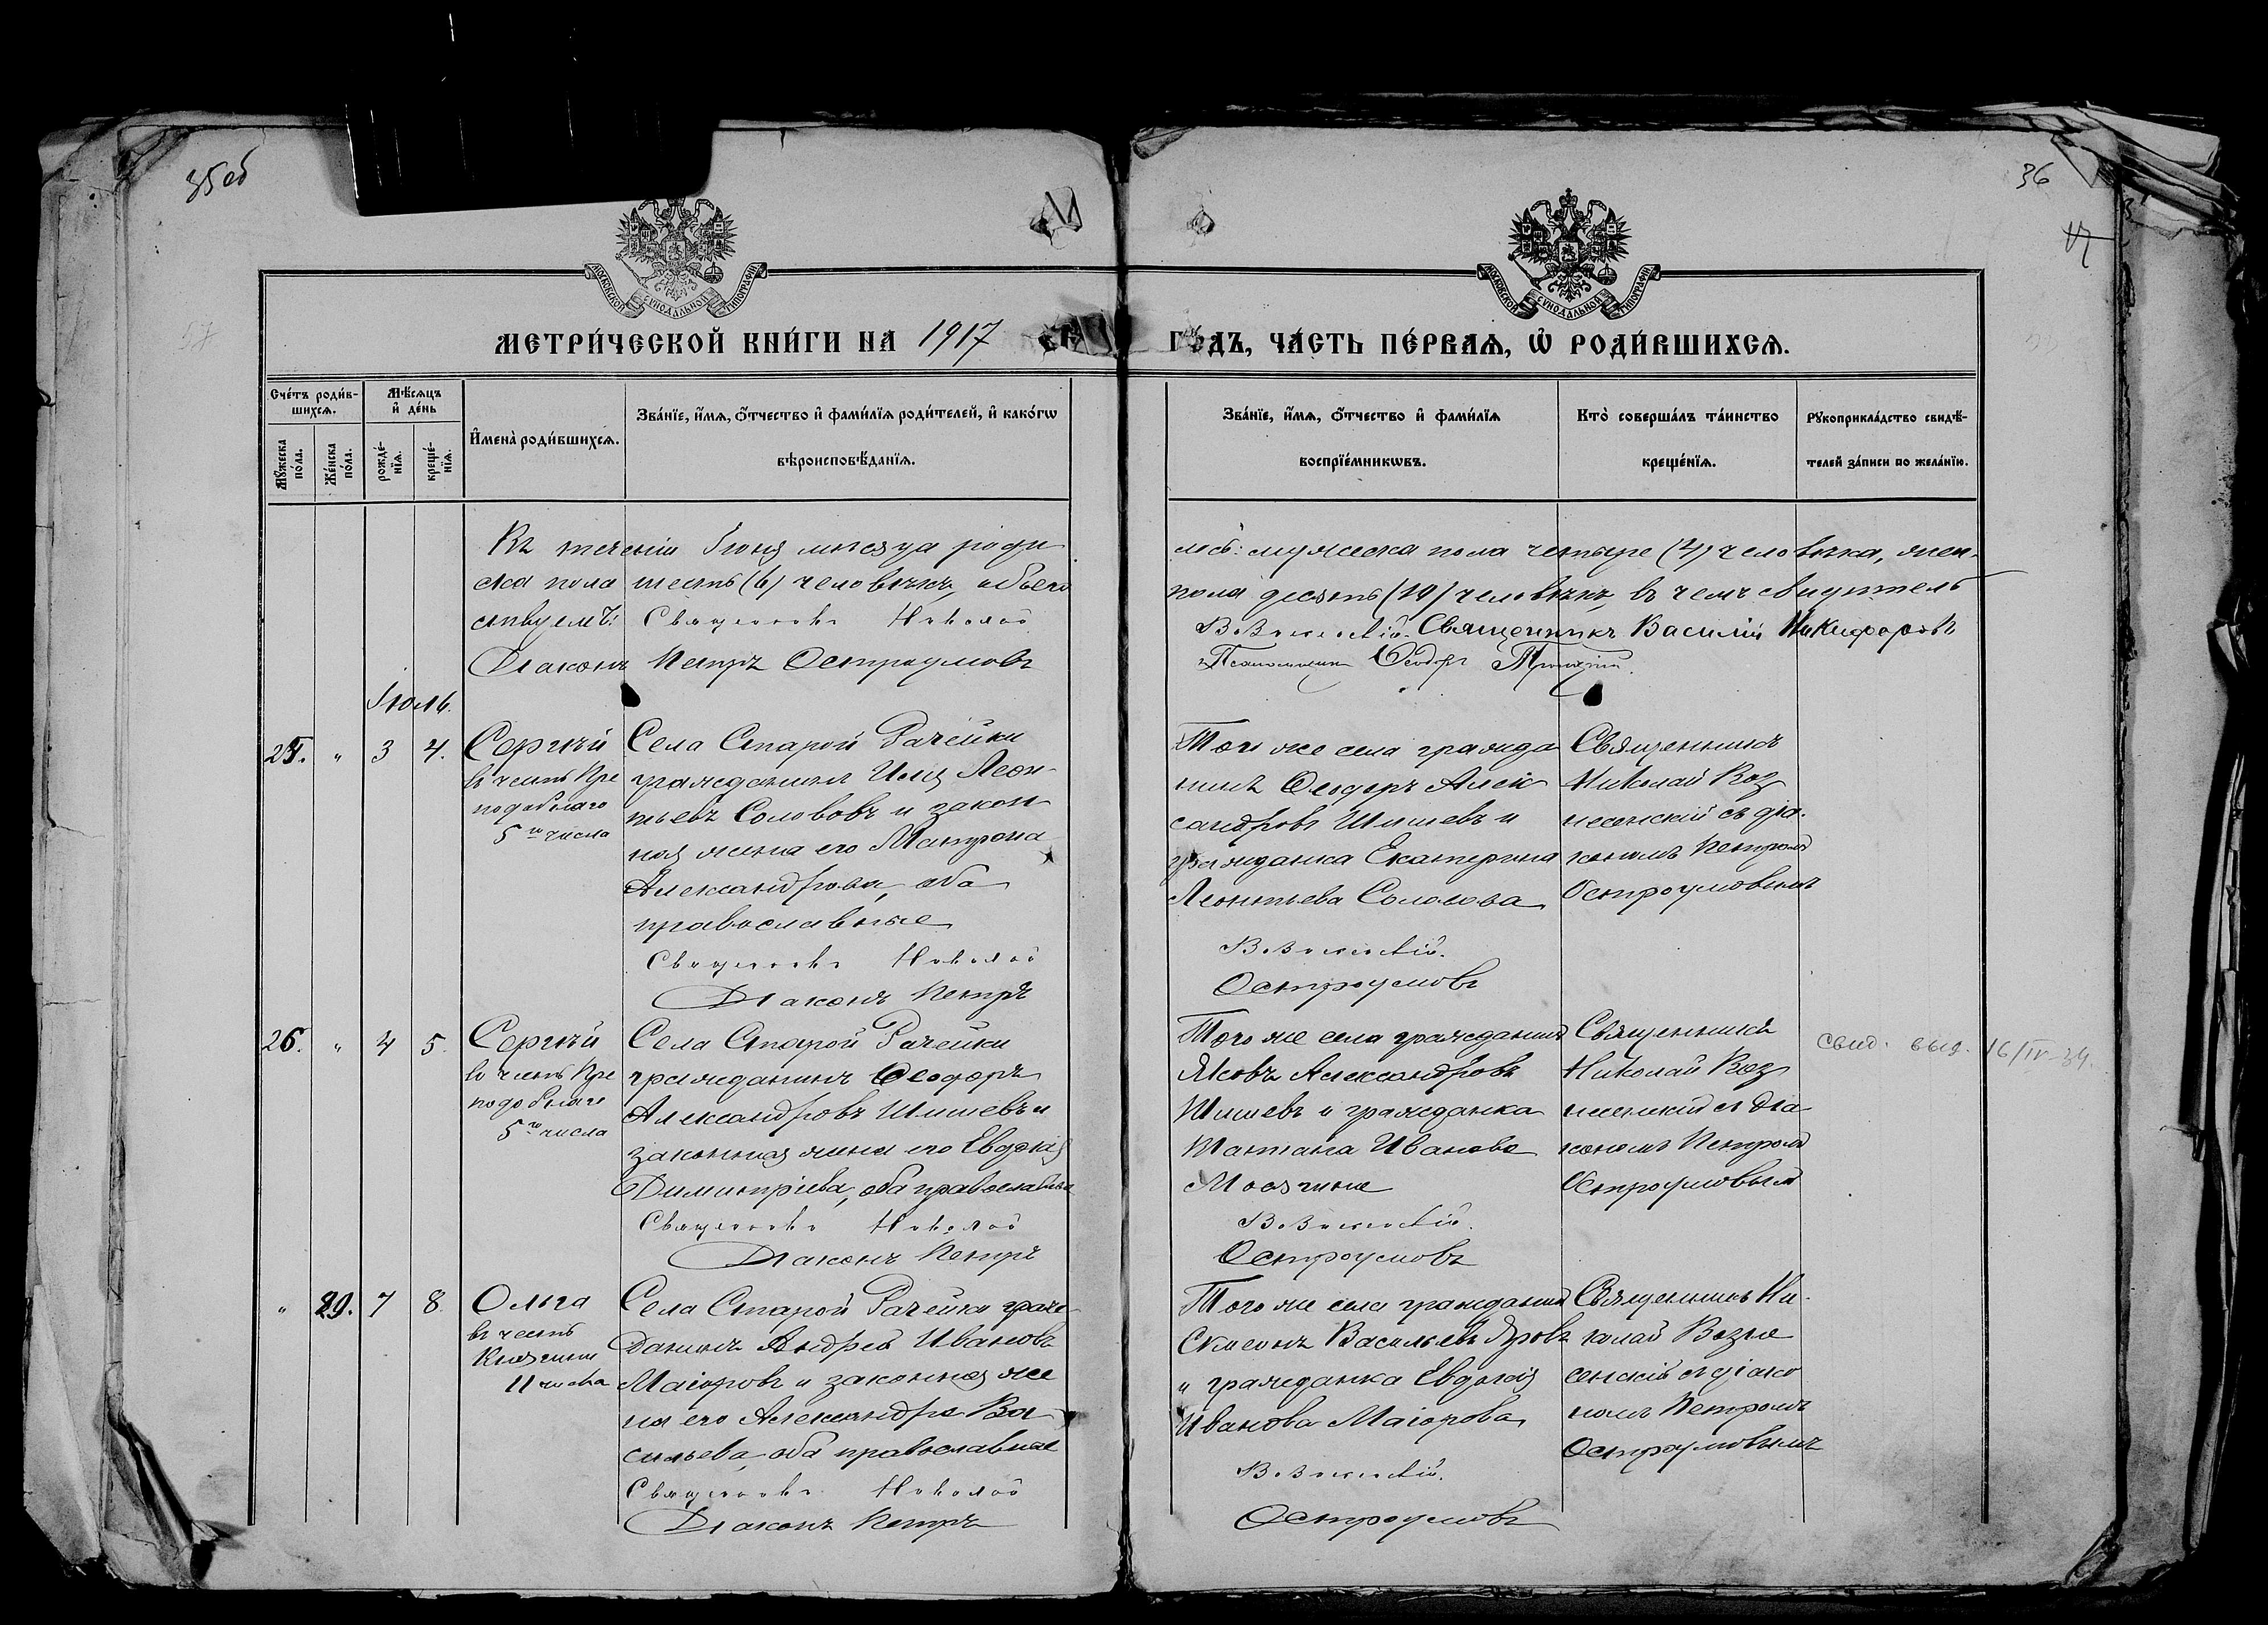 35 об
36
МЕТРИЧЕСКОЙ КНИГИ НА 1917
ГОДЪ, ЧАСТЬ ПЕРВАЯ, Ѡ РОДИВШИХСЯ.
Счетъ родив-
шихся.
Мѣсяцъ
и день
Мужеска
пола.
Женска
пола.
рожде-
нїя.
креще-
нїя.
Имена родившихся.
Званїе, имя, отчество и фамилїя родителей, и какогѡ
вѣроисповѣданїя.
Званїе, имя, отчество и фамилїя
воспрїемникѡвъ.
Кто совершалъ таинство
крещенїя.
Рукоприкладство свидѣ-
телей записи по желанїю.
Въ теченіи Іюня мѣсяца роди
лось: мужеска пола четыре (4) человѣка, жен-
ска пола шесть (6) человѣкъ, обоего
пола десять (10) человѣкъ, въ чемъ свидѣтель
ствуемъ: Священникъ Николай
Вознесенскій. Священникъ Василій Никифоровъ
Діаконъ Петръ Остроумовъ
Псаломщикъ Ѳеодоръ
Іюль.
25. " 3 4.
Сергѣй
въ честь Пре
подобнаго
5го числа
Села Старой Рачейки
гражданинъ Илія Леон-
тьевъ Солововъ и закон
ная жена его Матрона
Александрова, оба
православные
Священникъ Николай
Діаконъ Петръ
Того же села гражда
нинъ Ѳеодоръ Алек
сандровъ Шишевъ и
гражданка Екатерина
Леонтьева Соловова
Вознесенскій.
Остроумовъ
Священникъ
Николай Воз
несенскій съ діа-
кономъ Петромъ
Остроумовымъ
26. " 4 5.
Сергѣй
въ честь Пре
подобнаго
5го числа
Села Старой Рачейки
гражданинъ Ѳеодоръ
Александровъ Шишевъ и
законная жена его Евдокія
Димитріева, оба православные
Священникъ Николай
Діаконъ Петръ
Того же села гражданинъ
Яковъ Александровъ
Шишевъ и гражданка
Татіана Иванова
Вознесенскій.
Остроумовъ
Священникъ
Николай Воз
несенскій съ діа-
кономъ Петромъ
Остроумовымъ
свид. выд. 16/IV-34.
" 29. 7 8.
Ольга
въ честь
Княгини
11 числа
Села Старой Рачейки граж-
данинъ Андрей Ивановъ
Маіоровъ и законная же
на его Александра Ва
сильева, оба православные
Священникъ Николай
Діаконъ Петръ
Того же села гражданинъ
Васильевъ
и гражданка Евдокія
Иванова Маіорова
Вознесенскій.
Остроумовъ
Священникъ Ни-
колай Возне
сенскій съ діако
номъ Петромъ
Остроумовымъ